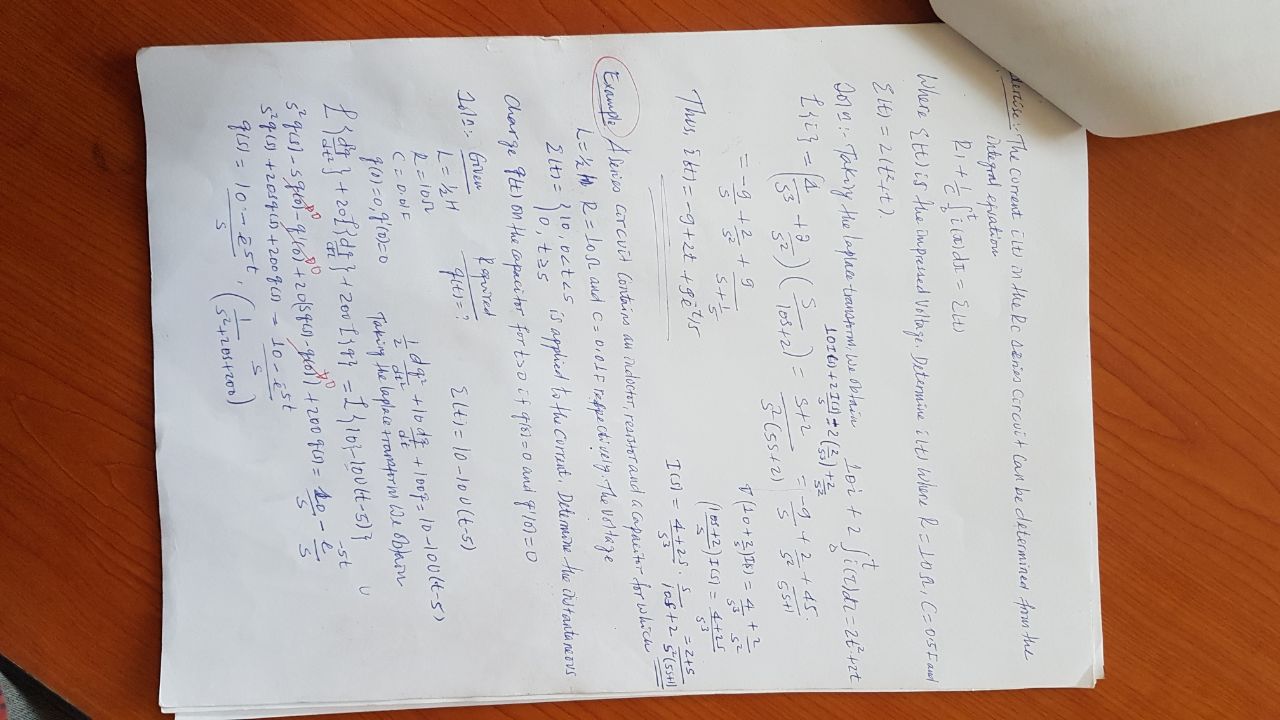 The current i(t) in the RC series circuit can be determined from the
integral equation
Ri + 1/C ∫₀ᵗ i(τ)dτ = E(t)
Where E(t) is the impressed Voltage. Determine i(t) where R = 10Ω, C = 0.5F and
E(t) = 2(t²+t).
Soln:- Taking the laplace transform, we obtain 10i + 2 ∫₀ᵗ i(τ)dτ = 2t²+2t
10I(s) + 2I(s)/s = 2(2/s³) + 2/s²
(10 + 2/s)I(s) = 4/s³ + 2/s²
((10s+2)/s) I(s) = (4+2s)/s³
I(s) = (4+2s)/s³ · s/(10s+2) = (2+s)/(s²(5s+1))
= -9/s + 2/s² + 9/(s+1/5)
Thus, i(t) = -9 + 2t + 9e^(-t/5)
Example A series circuit contains an inductor, resistor and a capacitor for which
L = ½H, R = 10Ω and C = 0.01F respectively. The voltage
E(t) = {10, 0<t<5 is applied to the current. Determine the instantaneous
{0, t≥5
Charge q(t) on the capacitor for t>0 if q(0)=0 and q'(0)=0
Soln:- Given
L = ½H
R = 10Ω
C = 0.01F
q(0)=0, q'(0)=0
Required
q(t) = ?
E(t) = 10 - 10U(t-5)
½ dq²/dt² + 10 dq/dt + 100q = 10 - 10U(t-5)
Taking the laplace transform we obtain
s²q(s) + 20sq(s) + 200q(s) =